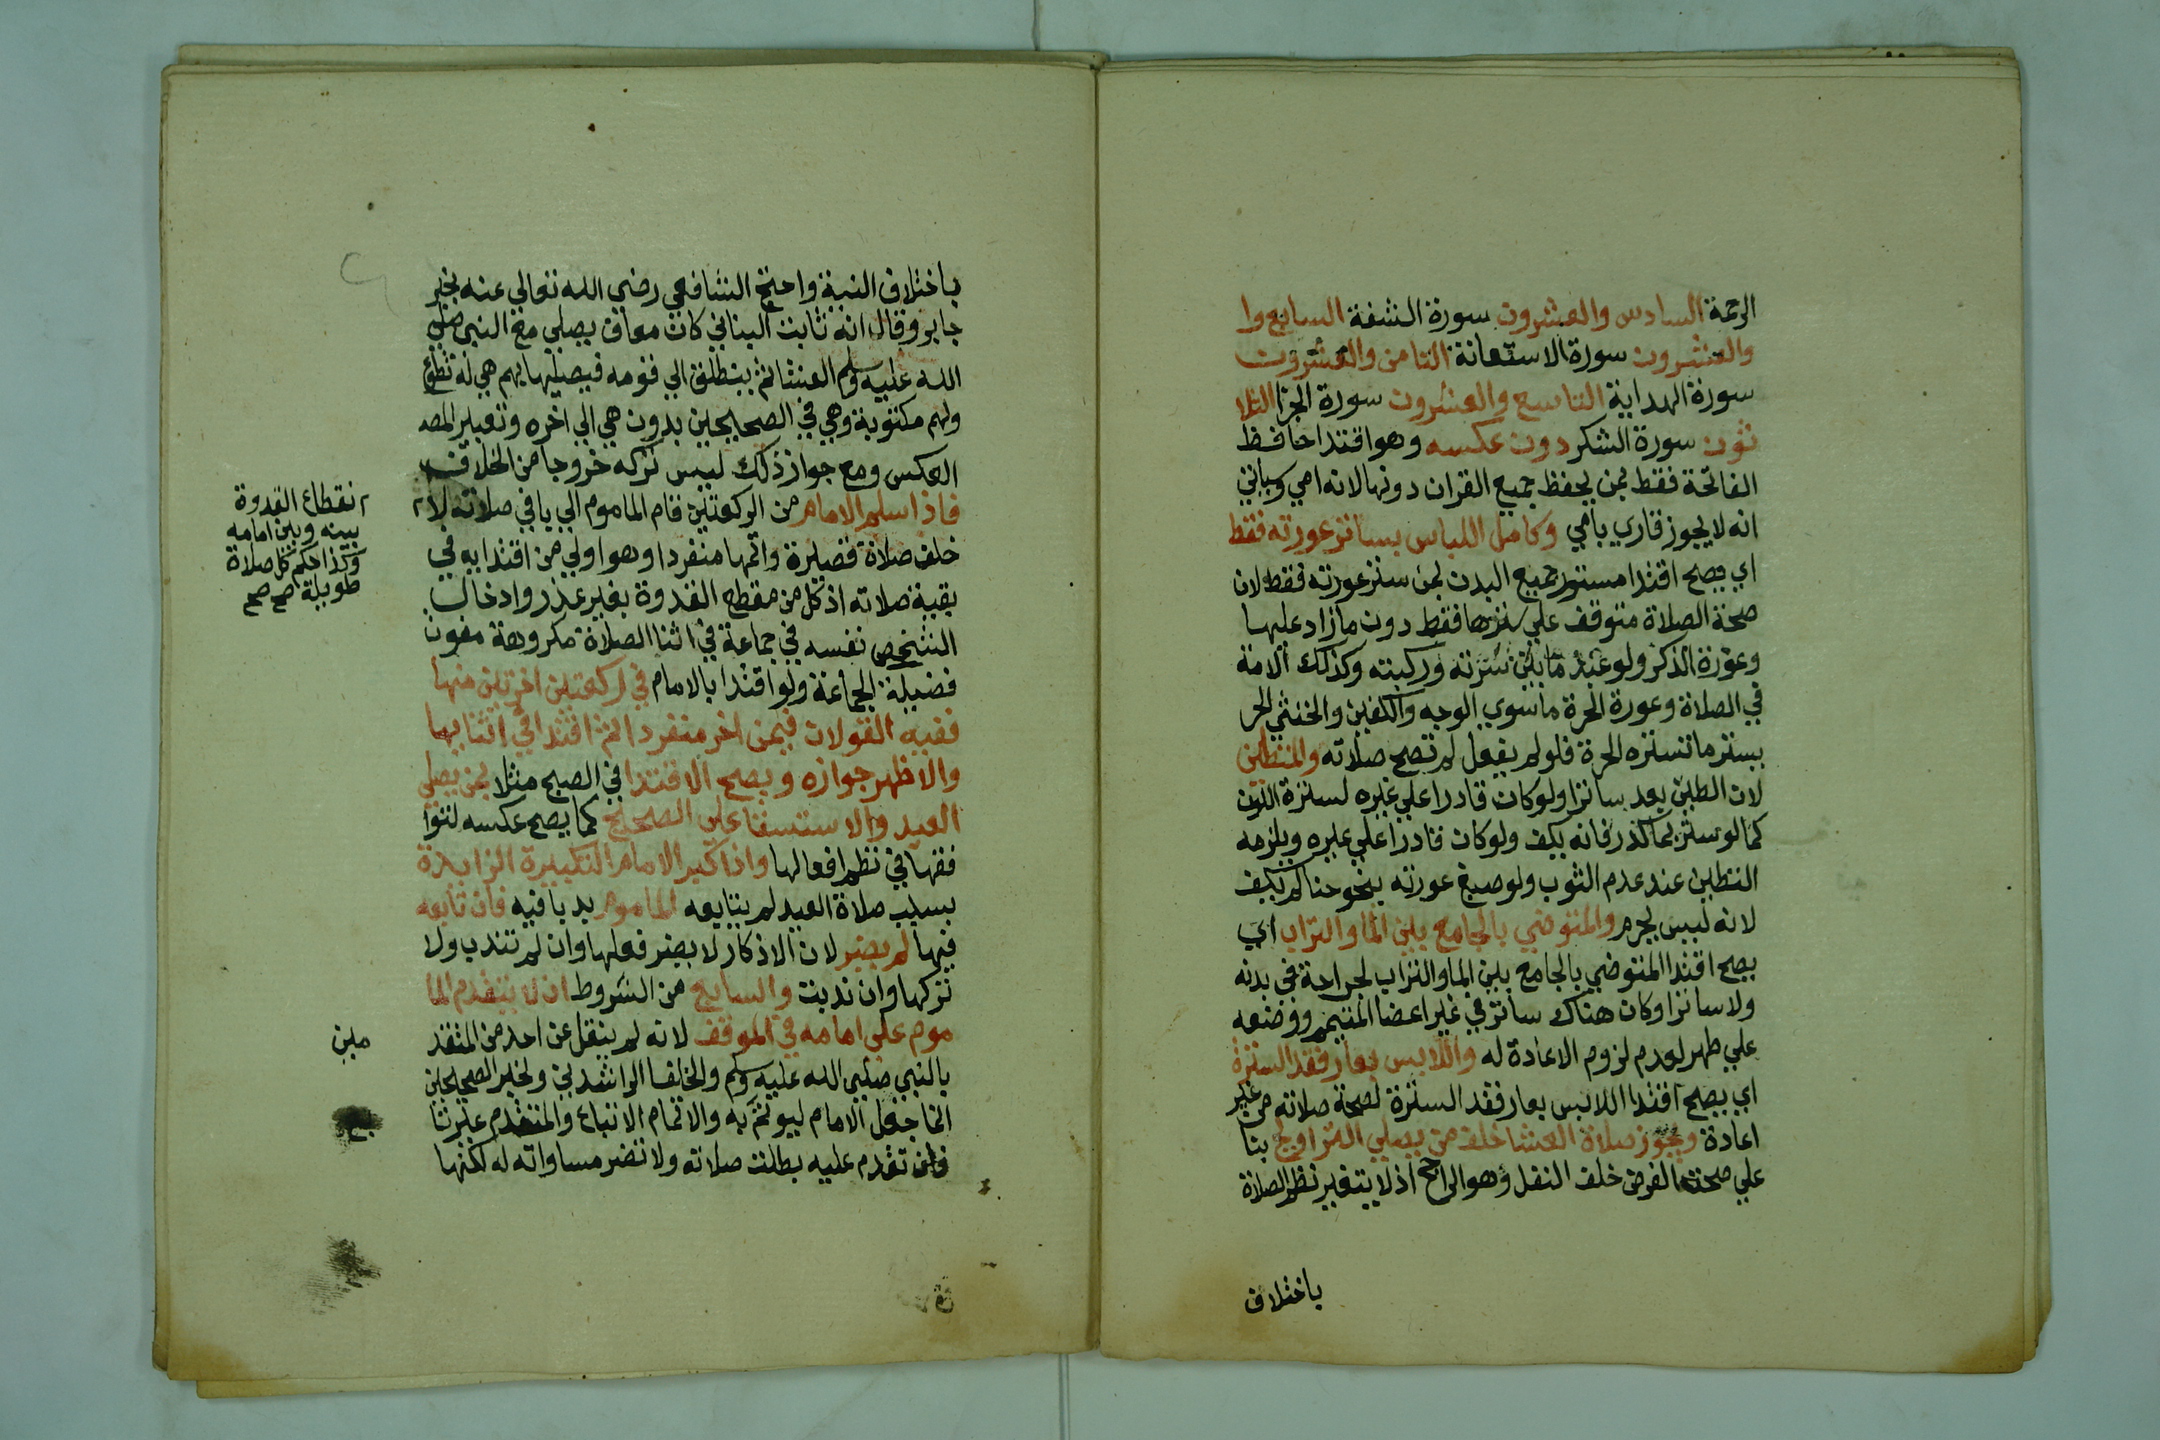 الرحمة السادس والعشرون سورة الشفة السابع وا
والعشرون سورة الاستعانة الثامن والعشروت
سورة الهداية التاسع والعشرون سورة الجزا الثلا
ثون سورة الشكر دون عكسه وهو اقتدا حافظ
الفاتحة فقط بمن يحفظ جميع القران دونها لانه امي وياتي
انه لا يجوز قاري بامي وكامل اللباس بساتر عورته فقط
اي يصح اقتدا مستور جميع البدن بمن ستر عورته فقط لان
صحة الصلاة متوقف علي سترها فقط دون ما زاد عليها
وعورة الذكر ولو عند ما بين سرته وركبته وكذلك الامة
في الصلاة وعورة الحرة ما سوي الوجه والكفين والخنثي الحر
يستر ما تستره الحرة فلو لم يفعل لم تصح صلاته والمتطين
لان الطين يعد ساترا ولو كان قادرا علي غيره لسترة اللون
كما لو ستر بما كدر فانه يكف ولو كان قادرا علي غيره ويلزمه
التطين عند عدم الثوب ولو صبغ عورته بنحو حنا لم يكف
لانه ليس بجرم والمتوضي بالجامع بين الما والتراب اي
يصح اقتدا المتوضي بالجامع بين الما والتراب لجراحة في بدنه
ولا ساترا وكان هناك ساتر في غير اعضا التيمم ووضعه
علي طهر لعدم لزوم الاعادة له واللابس بعار فقد السترة
اي يصح اقتدا اللابس بعار فقد السترة لصحة صلاته من غير
اعادة ويجوز صلاة العشا خلف من يصلي التراويح بنا
علي صحة الفرض خلف النفل وهو الراجح اذ لا يتغير نظم الصلاة
باختلاف
باختلاف النية واحتج الشافعي رضي الله تعالي عنه بخبر
جابر وقال انه ثابت البناني كان معاذ يصلي مع النبي صلي
الله عليه وسلم العشا ثم ينطلق الي قومه فيصليها بهم هي له تطوع
ولهم مكتوبة وهي في الصحيحين بدون هي الي اخره وتعبير المصه
العكس ومع جواز ذلك ليس تركه خروجا من الخلاف
فاذا سلم الامام من الركعتين قام الماموم الي باقي صلاته لا
خلف صلاة قصيرة واتمها منفردا وهو اولي من اقتدا به في
بقية صلاته اذ كل من مقطع القدوة بغير عذر وادخال
الشخص نفسه في جماعة في اثنا الصلاة مكروهة مفوت
فضيلة الجماعة ولو اقتدا بالامام في ركعتين اخرتين منها
ففيه القولان فيمن احرم منفردا ثم اقتدا في اثنايها
والاظهر جوازه ويصح الاقتدا في الصبح مثلا بمن يصلي
العيد والاستسقا علي الصحيح كما يصح عكسه لتوا
فقها في نظم افعالها واذا كبر الامام التكبيرة الزايدة
بسبب صلاة العيد لم يتابعه الماموم بد يا فيه فان تابعه
فيها لم يضر لان الاذكار لا يضر فعلها وان لم تندب ولا
تركها وان ندبت والسابع من الشروط ان لا يتقدم الما
موم علي امامه في الموقف لانه لم ينقل عن احد من المقتد
بالنبي صلي الله عليه وسلم والخلفا الراشدين ولخبر الصحيحين
انما جعل الامام ليوتم به والاتمام الاتباع والمتقدم غير تا
فان تقدم عليه بطلت صلاته ولا تضر مساواته له لكنها
انقطاع القدوة
بينه وبين امامه
وكذا حكم كل صلاة
طويلة صح صح
مين
بع